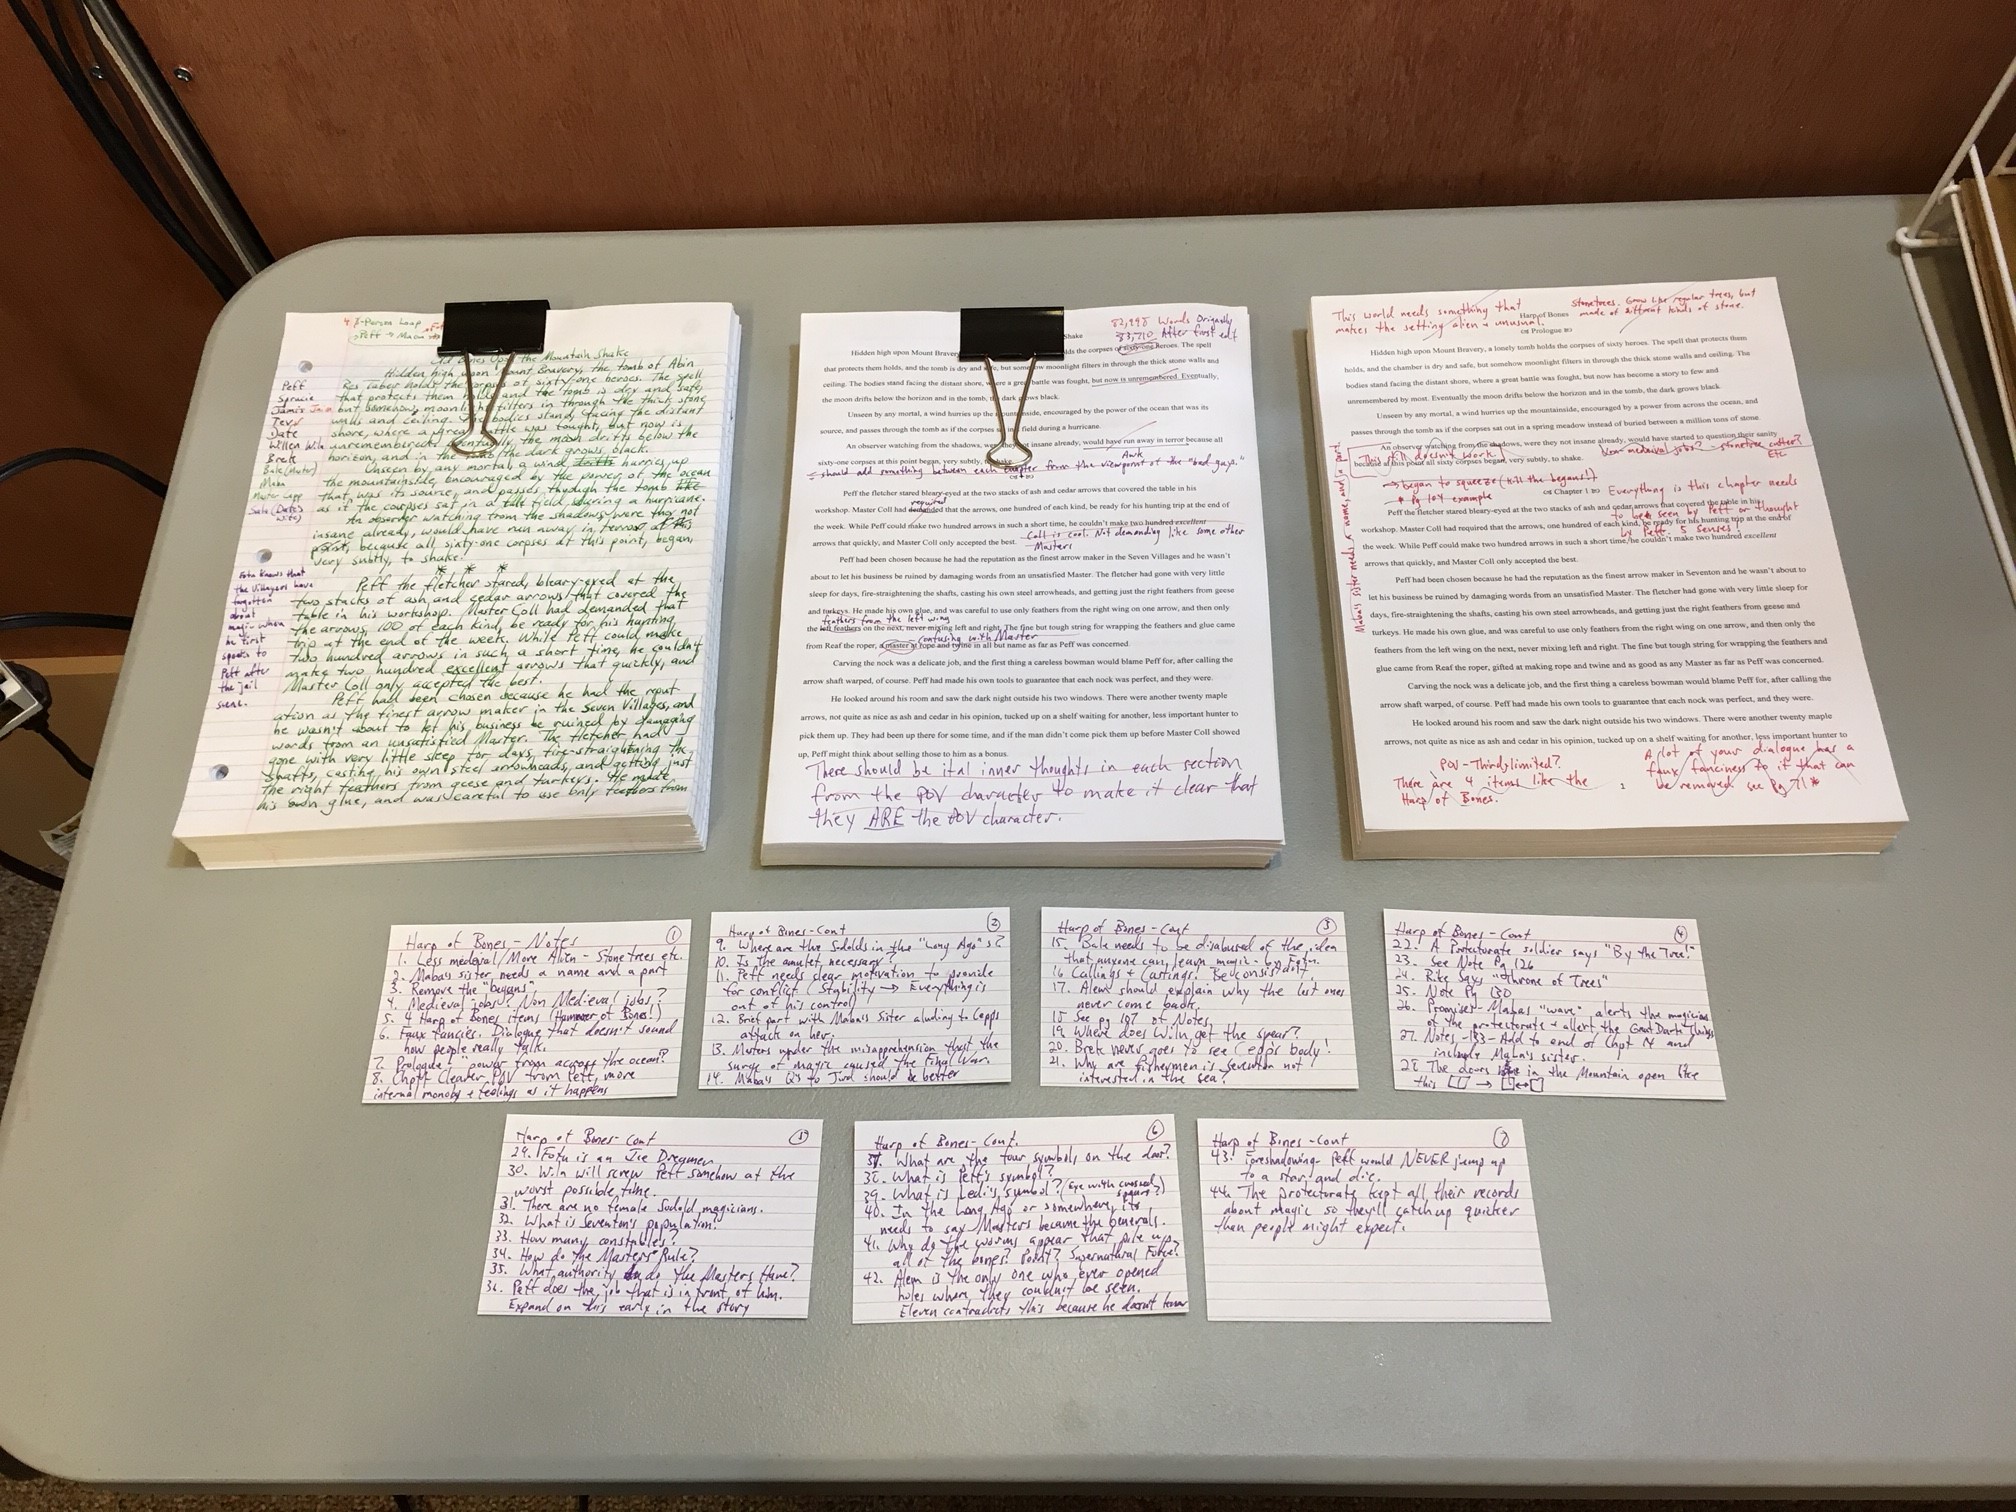 4 Person Loup
Peff → Maba
Old Bones Upon the Mountain Shake
Hidden high upon Mount Bravery, the tomb of Abin
Res Taber holds the corpses of sixty-one heroes. The spell
that protects them holds and the tomb is dry and safe,
but somehow moonlight filters in through the thick stone
walls and ceiling. The bodies stand, facing the distant
shore, where a great battle was fought, but now is
unremembered. Eventually, the moon drifts below the
horizon, and in the tomb the dark grows black.
Unseen by any mortal a wind hurries up
the mountainside, encouraged by the power of the ocean
that was its source, and passes through the tomb like
as if the corpses sat in a field during a hurricane.
An observer watching from the shadows, were they not
insane already, would have run away in terror at this
point, because all sixty-one corpses at this point, began,
very subtly, to shake.
* * *
Peff the fletcher stared, bleary-eyed at the
two stacks of ash and cedar arrows that covered the
table in his workshop. Master Coll had demanded that
the arrows, 100 of each kind, be ready for his hunting
trip at the end of the week. While Peff could make
two hundred arrows in such a short time, he couldn't
make two hundred excellent arrows that quickly, and
Master Coll only accepted the best.
Peff had been chosen because he had the reput-
ation as the finest arrow maker in the Seven Villages, and
he wasn't about to let his business be ruined by damaging
words from an unsatisfied Master. The fletcher had
gone with very little sleep for days, fire-straightening the
shafts, casting his own steel arrowheads, and getting just
the right feathers from geese and turkeys. He made
his own glue, and was careful to use only feathers from
Peff
Sprucie
Jamis
Date
Willen Wiln
Brek
Bale (Master)
Maba
Master Cepp
(Date's
wife)
Fotu knows that
the villagers have
forgotten
about
magic when
he first
speaks to
Peff after
the jail
scene.
Shake
82,998 Words Originally
83,710 After first edit
Hidden high upon Mount Bravery
lds the corpses of sixty-one heroes. The spell
that protects them holds, and the tomb is dry and safe, but somehow moonlight filters in through the thick stone walls and
ceiling. The bodies stand facing the distant shore, where a great battle was fought, but now is unremembered. Eventually,
the moon drifts below the horizon and in the tomb, the dark grows black.
Unseen by any mortal, a wind hurries up the mountainside, encouraged by the power of the ocean that was its
source, and passes through the tomb as if the corpses sat in a field during a hurricane.
Awk
An observer watching from the shadows, were they not insane already, would have run away in terror because all
sixty-one corpses at this point began, very subtly, to shake.
should add something between each chapter from the viewpoint of the "bad guys."
Peff the fletcher stared bleary-eyed at the two stacks of ash and cedar arrows that covered the table in his
required
workshop. Master Coll had demanded that the arrows, one hundred of each kind, be ready for his hunting trip at the end of
the week. While Peff could make two hundred arrows in such a short time, he couldn't make two hundred excellent
arrows that quickly, and Master Coll only accepted the best. Coll is cool. Not demanding like some other
Masters
Peff had been chosen because he had the reputation as the finest arrow maker in the Seven Villages and he wasn't
about to let his business be ruined by damaging words from an unsatisfied Master. The fletcher had gone with very little
sleep for days, fire-straightening the shafts, casting his own steel arrowheads, and getting just the right feathers from geese
and turkeys. He made his own glue, and was careful to use only feathers from the right wing on one arrow, and then only
feathers from the left wing
the left feathers on the next, never mixing left and right. The fine but tough string for wrapping the feathers and glue came
confusing with Master
from Reaf the roper, a master at rope and twine in all but name as far as Peff was concerned.
Carving the nock was a delicate job, and the first thing a careless bowman would blame Peff for, after calling the
arrow shaft warped, of course. Peff had made his own tools to guarantee that each nock was perfect, and they were.
He looked around his room and saw the dark night outside his two windows. There were another twenty maple
arrows, not quite as nice as ash and cedar in his opinion, tucked up on a shelf waiting for another, less important hunter to
pick them up. They had been up there for some time, and if the man didn't come pick them up before Master Coll showed
up, Peff might think about selling those to him as a bonus.
There should be ital inner thoughts in each section
from the POV character to make it clear that
they ARE the POV character.
This world needs something that
makes the setting alien & unusual.
Stonetrees. Grow like regular trees, but
made of different kinds of stone.
Harp of Bones
Prologue
Hidden high upon Mount Bravery, a lonely tomb holds the corpses of sixty heroes. The spell that protects them
holds, and the chamber is dry and safe, but somehow moonlight filters in through the thick stone walls and ceiling. The
bodies stand facing the distant shore, where a great battle was fought, but now has become a story to few and
unremembered by most. Eventually the moon drifts below the horizon and in the tomb, the dark grows black.
Unseen by any mortal, a wind hurries up the mountainside, encouraged by a power from across the ocean, and
passes through the tomb as if the corpses sat out in a spring meadow instead of buried between a million tons of stone.
An observer watching from the shadows, were they not insane already, would have started to question their sanity
This still doesn't work!
Non-medieval jobs? - stonetree cutter?
Etc
because at this point all sixty corpses began, very subtly, to shake.
→ began to squeeze (kill the begans!)
* Pg 104 example
Chapter 1
Everything is this chapter needs
to be seen by Peff or thought
by Peff. 5 senses!
Peff the fletcher stared bleary-eyed at the two stacks of ash and cedar arrows that covered the table in his
workshop. Master Coll had required that the arrows, one hundred of each kind, be ready for his hunting trip at the end of
the week. While Peff could make two hundred arrows in such a short time, he couldn't make two hundred excellent
arrows that quickly, and Master Coll only accepted the best.
Peff had been chosen because he had the reputation as the finest arrow maker in Seventon and he wasn't about to
let his business be ruined by damaging words from an unsatisfied Master. The fletcher had gone with very little sleep for
days, fire-straightening the shafts, casting his own steel arrowheads, and getting just the right feathers from geese and
turkeys. He made his own glue, and was careful to use only feathers from the right wing on one arrow, and then only the
feathers from the left wing on the next, never mixing left and right. The fine but tough string for wrapping the feathers and
glue came from Reaf the roper, gifted at making rope and twine and as good as any Master as far as Peff was concerned.
Carving the nock was a delicate job, and the first thing a careless bowman would blame Peff for, after calling the
arrow shaft warped, of course. Peff had made his own tools to guarantee that each nock was perfect, and they were.
He looked around his room and saw the dark night outside his two windows. There were another twenty maple
arrows, not quite as nice as ash and cedar in his opinion, tucked up on a shelf waiting for another, less important hunter to
Maba's sister needs a name, and a part.
POV - Third, limited?
There are 4 items like the
Harp of Bones.
A lot of your dialogue has a
faux fanciness to it that can
be removed see Pg 71*
Harp of Bones - Notes 1
1. Less medieval/More Alien - Stonetrees etc.
2. Maba's sister needs a name and a part
3. Remove the "begans"
4. Medieval jobs? Non Medieval jobs?
5. 4 Harp of Bones items (Hammer of Bones!)
6. Faux fancies. Dialogue that doesn't sound
how people really talk.
7. Prologue "power from across the ocean"?
8. Chpt 1 Clearer POV from Peff, more
internal monolog + feelings as it happens
Harp of Bones - Cont 2
9. Where are the Sodolds in the "Long Ago"s?
10. Is the amulet necessary?
11. Peff needs clear motivation to provide
for conflict (Stability → Everything is
out of his control)
12. Brief part with Maba's Sister aluding to Cepps
attack on her.
13. Masters under the misapprehension that the
surge of magic caused the Final War.
14. Maba's Q's to Jurd should be better
Harp of Bones - Cont 3
15. Bale needs to be disabused of the idea
that anyone can learn magic - by Fotu.
16 Callings + Castings. Be consistent
17. Alem should explain why the lost ones
never come back.
18 See pg 107 of Notes
19 Where does Wiln get the spear?
20. Brek never goes to see Cepps body!
21. Why are fishermen is Seventon not
interested in the sea?
Harp of Bones - Cont 4
22. A Protectorate soldier says "By the Tree!"
23. See Note Pg 126
24. Rike says "Throne of Trees"
25. Note Pg 130
26. Promises - Mabas "wave" alerts the magicians
of the protectorate + allert the Great Dark Things
27. Notes - 133 - Add to end of Chpt 14 and
include Maba's sister.
28 The doors in the Mountain open like
this
Harp of Bones - Cont 5
29. Fotu is an Ice Dreamer
30. Wiln will screw Peff somehow at the
worst possible time.
31. There are no female Sodold magicians.
32. What is Seventon's population?
33. How many constables?
34. How do the Masters Rule?
35. What authority do the Masters Have?
36. Peff does the job that is in front of him.
Expand on this early in the story
Harp of Bones - Cont. 6
37. What are the four symbols on the door?
38. What is Peff's symbol?
39. What is Ledi's symbol? (Eye with crossed
spears?)
40. In the Long Ago or somewhere, its
needs to say Masters became the generals.
41. Why do the worms appear that pile up
all of the bones? Point? Supernatural Force?
42. Alem is the only one who ever opened
holes where they couldn't be seen.
Eleven contradicts this because he doesn't know
Harp of Bones - Cont 7
43. Foreshadowing - Peff would NEVER jump up
to a star and die.
44. The protectorate kept all their records
about magic so they'll catch up quicker
than people might expect.